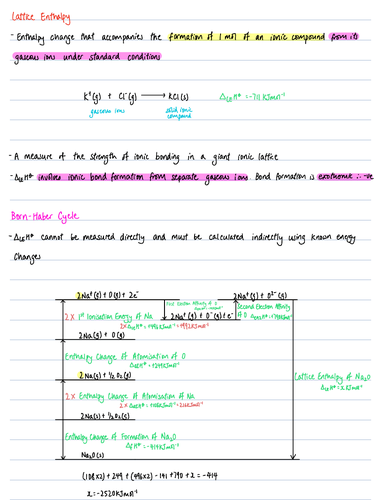 Lattice Enthalpy
- Enthalpy change that accompanies the formation of 1 mol of an ionic compound from its
gaseous ions under standard conditions
K⁺(g) + Cl⁻(g) ⟶ KCl(s) ΔLEH⦵ = -711 KJmol⁻¹
gaseous ions solid ionic
compound
- A measure of the strength of ionic bonding in a giant ionic lattice
- ΔLEH⦵ involves ionic bond formation from separate gaseous ions. Bond formation is exothermic ∴ -ve
Born-Haber Cycle
- ΔLEH⦵ cannot be measured directly and must be calculated indirectly using known energy
changes
2Na⁺(g) + O(g) + 2e⁻
2Na⁺(g) + O²⁻(g)
First Electron Affinity of O
2 × 1st Ionisation Energy of Na
2Na⁺(g) + O⁻(g) + e⁻
Second Electron Affinity
of O
2Na(g) + O(g)
Enthalpy Change of Atomisation of O
2Na(g) + ½O₂(g)
2 × Enthalpy Change of Atomisation of Na
2Na(s) + ½O₂(g)
Enthalpy Change of Formation of Na₂O
ΔfH⦵ = -414KJmol⁻¹
Na₂O(s)
Lattice Enthalpy of Na₂O
ΔLEH⦵ = x KJmol⁻¹
(108×2) + 249 + (496×2) - 141 + 790 + x = -414
x = -2520KJmol⁻¹